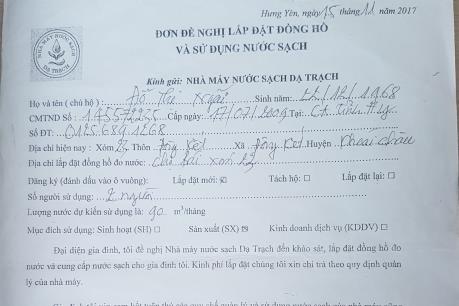 Hưng Yên, ngày 15 tháng 11 năm 2017
NHÀ MÁY NƯỚC SẠCH
DẠ TRẠCH
ĐƠN ĐỀ NGHỊ LẮP ĐẶT ĐỒNG HỒ
VÀ SỬ DỤNG NƯỚC SẠCH
Kính gửi: NHÀ MÁY NƯỚC SẠCH DẠ TRẠCH
Họ và tên ( chủ hộ ) : Đỗ Thị Sinh năm: 1968
CMTND Số : Cấp ngày: 17/07/2009 Tại: CA
Số ĐT: 0125.689.1268
Địa chỉ hiện nay : Xóm Thôn Xã Đông Kết Huyện Khoái Châu
Địa chỉ lắp đặt đồng hồ đo nước:
Đăng ký (đánh dấu vào ô vuông): Lắp đặt mới: Tách hộ: □ Lắp đặt lại: □
Số người sử dụng: 2 người
Lượng nước dự kiến sử dụng là: 90 m³/tháng
Mục đích sử dụng: Sinh hoạt (SH) □ Sản xuất (SX) Kinh doanh dịch vụ (KDDV) □
Đại diện gia đình, tôi đề nghị Nhà máy nước sạch Dạ Trạch đến khảo sát, lắp đặt đồng hồ đo
nước và cung cấp nước sạch cho gia đình tôi. Kinh phí lắp đặt chúng tôi xin chi trả theo quy định quản
lý của nhà máy.